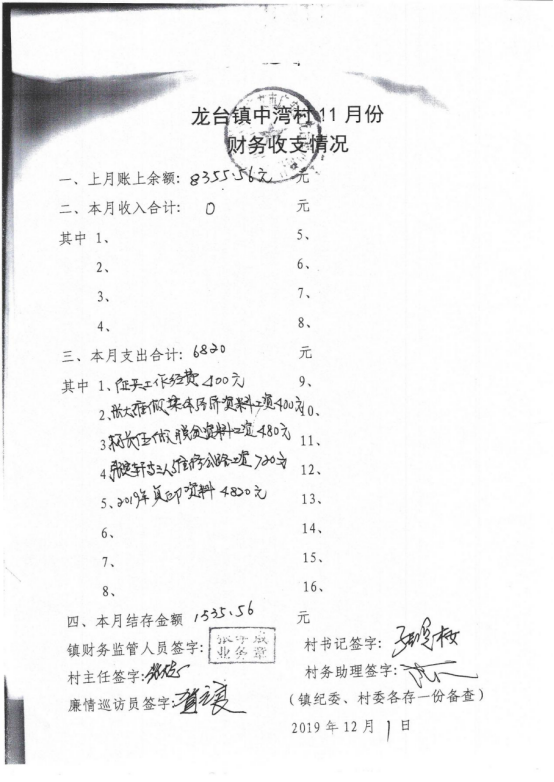 龙台镇中湾村11月份
财务收支情况
一、上月账上余额: 8355.56元 元
二、本月收入合计: 0 元
其中 1、 5、
2、 6、
3、 7、
4、 8、
三、本月支出合计: 6820 元
其中 1、征兵工作经费 400元 9、
2、做集体经济资料工资400元 10、
3、做脱贫资料工资480元 11、
4、三人维修公路工资720元 12、
5、2019年复印资料 4820元 13、
6、 14、
7、 15、
8、 16、
四、本月结存金额 1535.56 元
镇财务监管人员签字: 业务章 村书记签字:
村主任签字: 村务助理签字:
廉情巡访员签字: (镇纪委、村委各存一份备查)
2019年12月1日